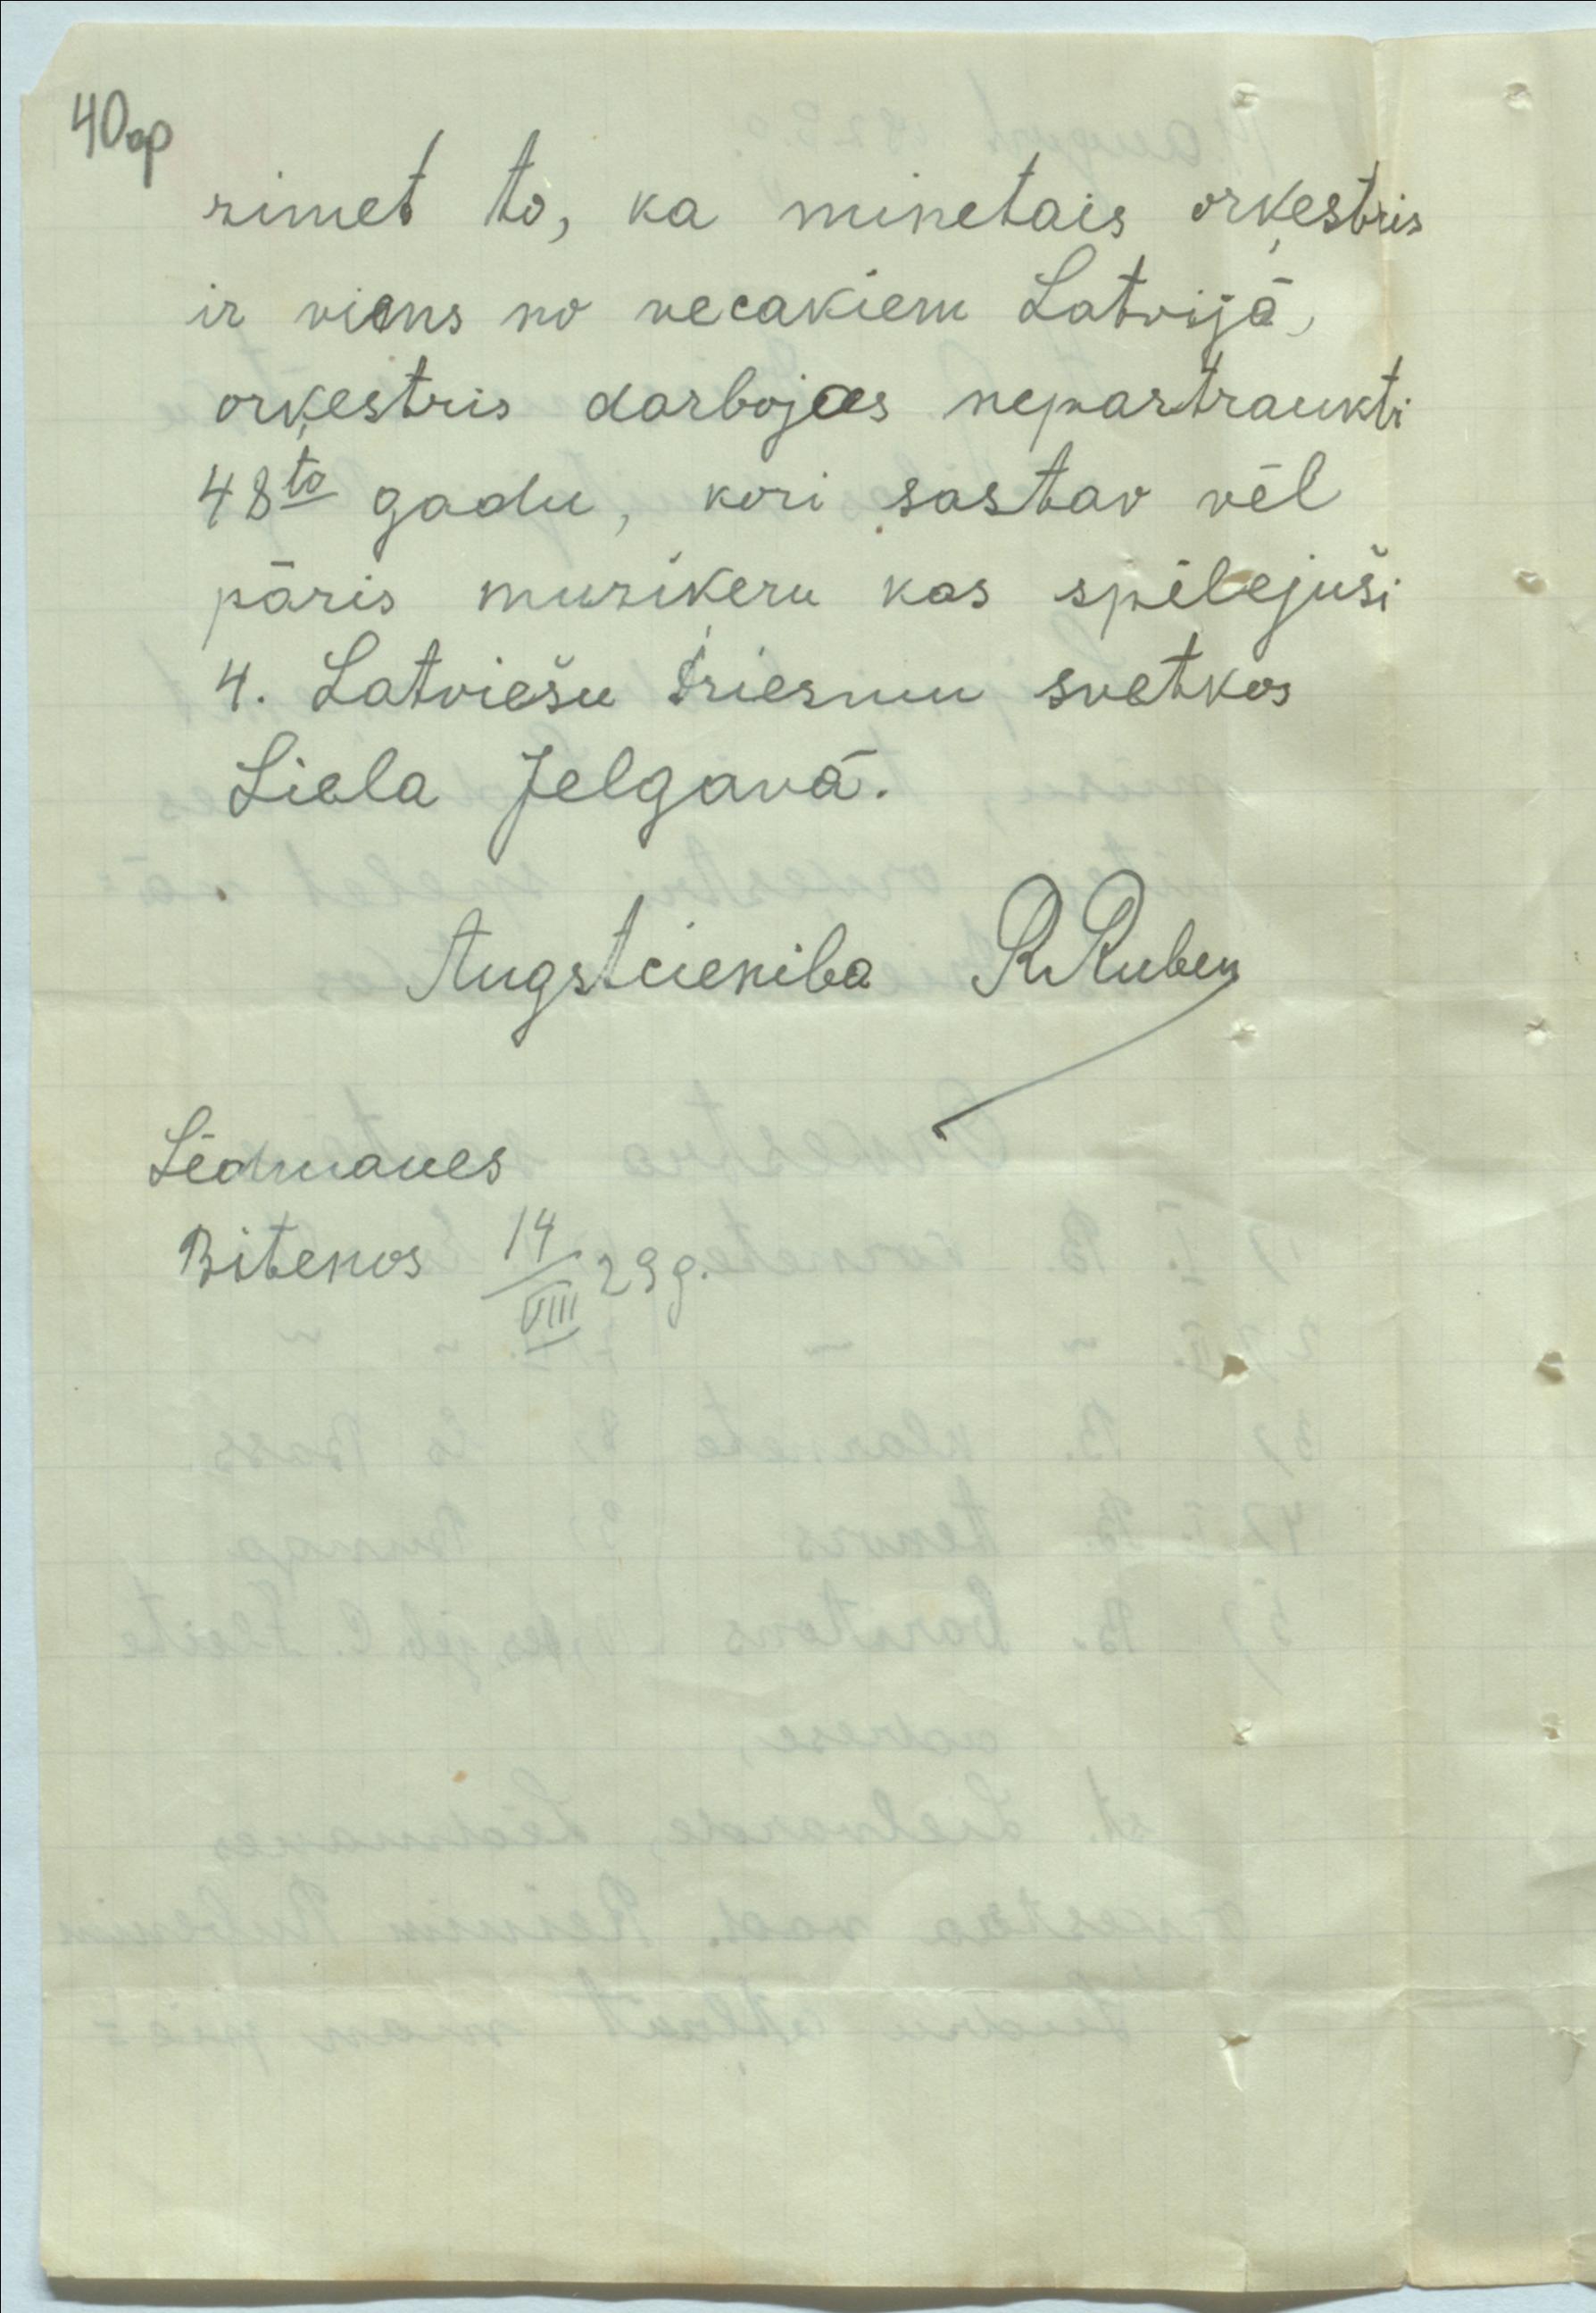 40op
zimet to, ka minetais orķestris
ir viens no vecakiem Latvijā,
orķestris darbojas nepartraukti
48to gadu, kori sastav vēl
pāris muziķeru kas spēlejuši
4. Latviešu Dziesmu svetkos
Liela Jelgavā.
Augstcieniba R Ruben
Lēdmanes
Bitenos 14/VIII 29g.